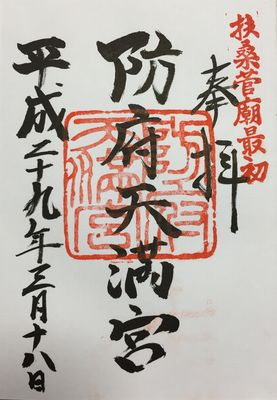 扶桑菅廟最初
奉拝
防府天満宮
平成二十九年三月十八日